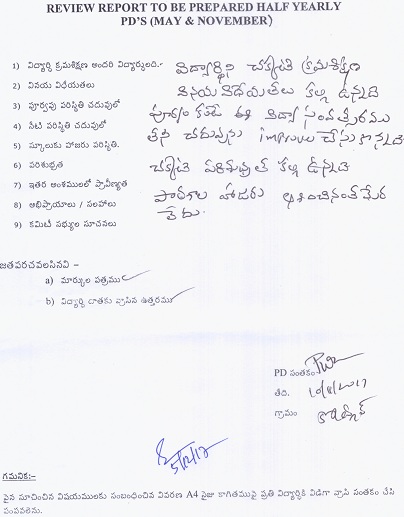 REVIEW REPORT TO BE PREPARED HALF YEARLY
PD'S (MAY & NOVEMBER)
1) విద్యార్థి క్రమశిక్షణ అందరి విద్యార్థులది.- విద్యార్థిని చక్కటి క్రమశిక్షణ
2) వినయ విధేయతలు వినయ విధేయతలు కల్గి ఉన్నది
3) పూర్వపు పరిస్థితి చదువులో పూర్వం కంటే ఈ విద్యా సంవత్సరము
4) నేటి పరిస్థితి చదువులో తన చదువును improve చేసుకొన్నది
5) స్కూలుకు హాజరు పరిస్థితి.
6) పరిశుభ్రత చక్కటి పరిశుభ్రత కల్గి ఉన్నది
7) ఇతర అంశములలో ప్రావీణ్యత పాఠశాల హాజరు ఆశించినంత మేర
8) అభిప్రాయాలు / సలహాలు లేదు.
9) కమిటీ సభ్యుల సూచనలు
జతపరచవలసినవి –
a) మార్కుల పత్రము
b) విద్యార్థి దాతకు వ్రాసిన ఉత్తరము
PD సంతకం
తేది. 10/8/2017
గ్రామం
5/12/17
గమనిక:–
పైన సూచించిన విషయములకు సంబంధించిన వివరణ A4 సైజు కాగితముపై ప్రతి విద్యార్థికి విడిగా వ్రాసి సంతకం చేసి
పంపవలెను.